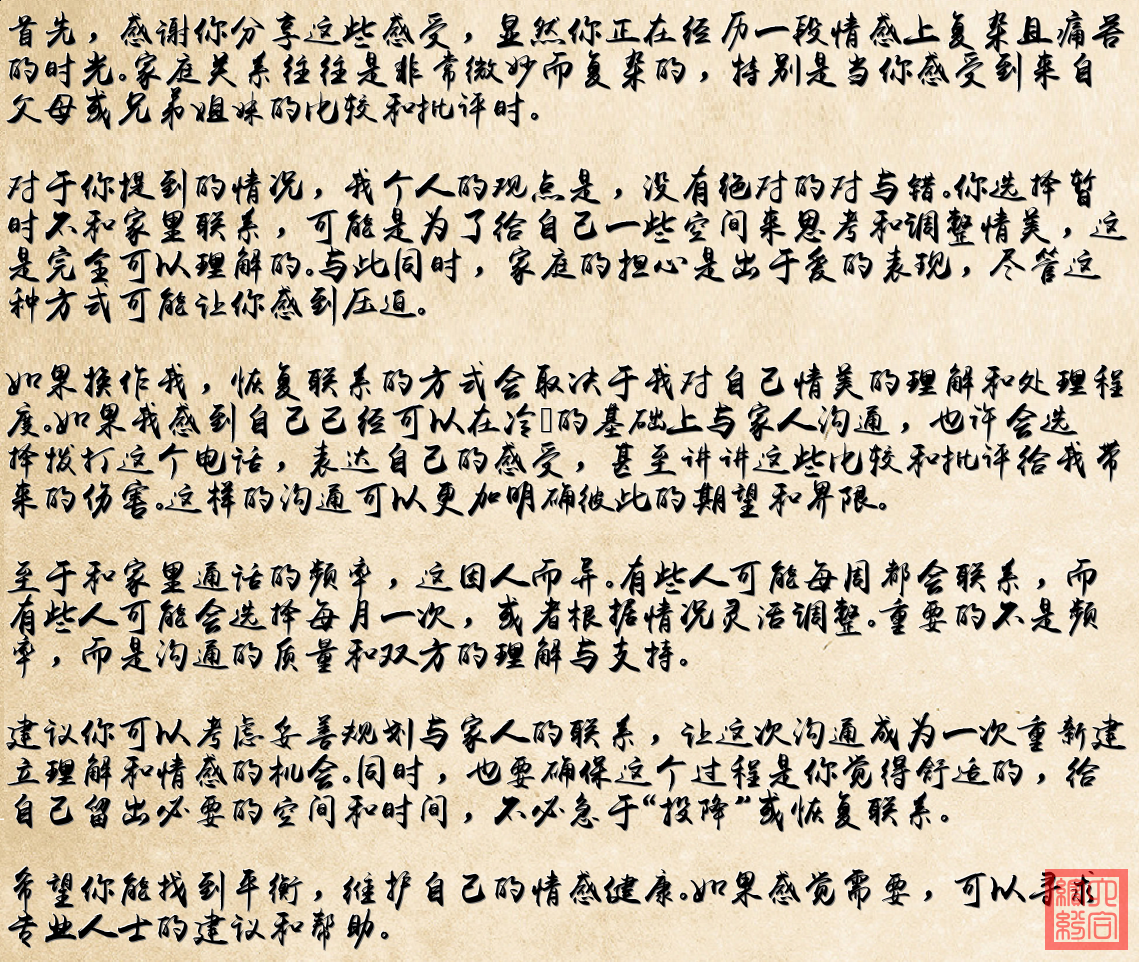 首先，感谢你分享这些感受，显然你正在经历一段情感上复杂且痛苦
的时光。家庭关系往往是非常微妙而复杂的，特别是当你感受到来自
父母或兄弟姐妹的比较和批评时。
对于你提到的情况，我个人的观点是，没有绝对的对与错。你选择暂
时不和家里联系，可能是为了给自己一些空间来思考和调整情美，这
是完全可以理解的。与此同时，家庭的担心是出于爱的表现，尽管这
种方式可能让你感到压迫。
如果换作我，恢复联系的方式会取决于我对自己情美的理解和处理程
度。如果我感到自己已经可以在冷的基础上与家人沟通，也许会选
择拨打这个电话，表达自己的感受，甚至讲讲这些比较和批评给我带
来的伤害。这样的沟通可以更加明确彼此的期望和界限。
至于和家里通话的频率，这因人而异。有些人可能每周都会联系，而
有些人可能会选择每月一次，或者根据情况灵活调整。重要的不是频
率，而是沟通的质量和双方的理解与支持。
建议你可以考虑妥善规划与家人的联系，让这次沟通成为一次重新建
立理解和情感的机会。同时，也要确保这个过程是你觉得舒适的，给
自己留出必要的空间和时间，不必急于“投降”或恢复联系。
希望你能找到平衡，维护自己的情感健康。如果感觉需要，可以寻求
专业人士的建议和帮助。